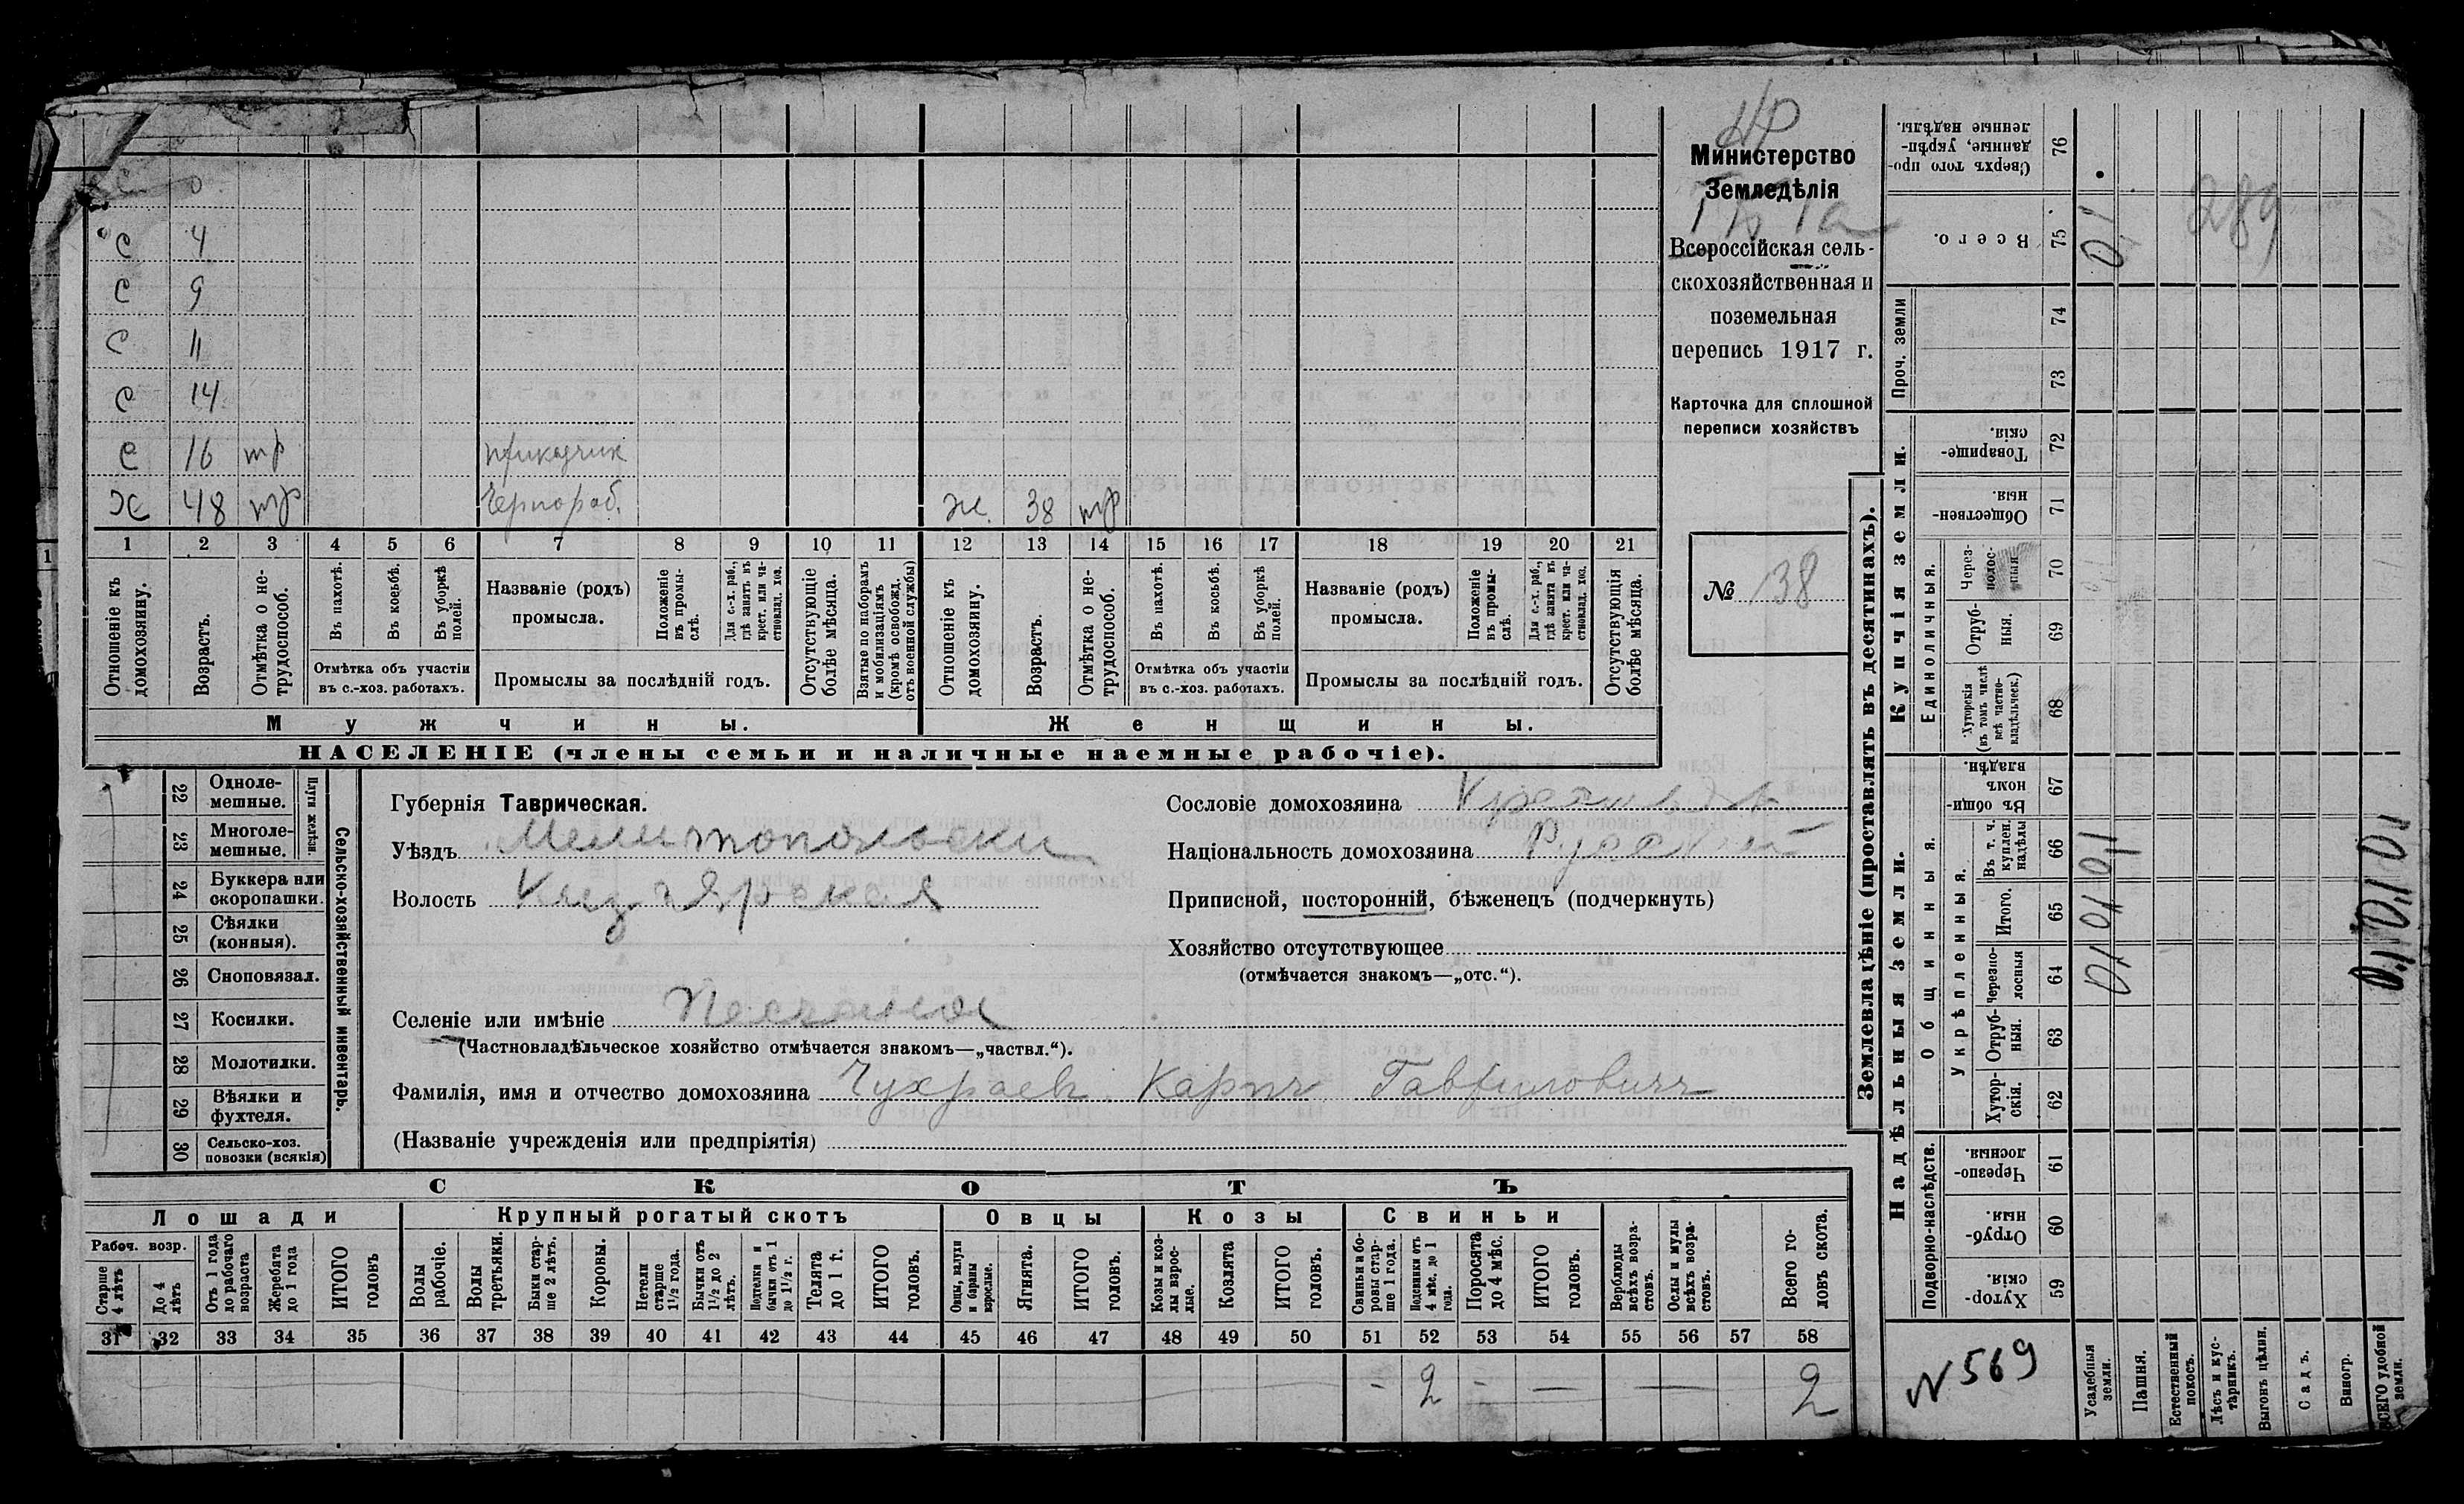 Министерство
Земледѣлія
Всероссійская сель-
скохозяйственная и
поземельная
перепись 1917 г.
Карточка для сплошной
переписи хозяйствъ
№ 138
с 4
с 9
с 11
с 14
с 16 тр прикащик
х 48 тр Чернораб. ж. 38 тр
1 2 3 4 5 6 7 8 9 10 11 12 13 14 15 16 17 18 19 20 21
Отношеніе къ домохозяину.
Возрастъ.
Отмѣтка о не-трудоспособ.
Въ пахотѣ.
Въ косьбѣ.
Въ уборкѣ полей.
Отмѣтка объ участіи
въ с.-хоз. работахъ.
Названіе (родъ)
промысла.
Положеніе въ промы-слѣ.
Для с.-х. раб., гдѣ занятъ въ крест. или ча-стновлад. хоз.
Промыслы за послѣдній годъ.
Отсутствующіе болѣе мѣсяца.
Взятые по наборамъ и мобилизаціямъ (кромѣ освобожд. отъ военной службы)
Отношеніе къ домохозяину.
Возрастъ.
Отмѣтка о не-трудоспособ.
Въ пахотѣ.
Въ косьбѣ.
Въ уборкѣ полей.
Отмѣтка объ участіи
въ с.-хоз. работахъ.
Названіе (родъ)
промысла.
Положеніе въ промы-слѣ.
Для с.-х. раб., гдѣ занята въ крест. или ча-стновлад. хоз.
Промыслы за послѣдній годъ.
Отсутствующія болѣе мѣсяца.
Мужчины. Женщины.
НАСЕЛЕНІЕ (члены семьи и наличные наемные рабочіе).
22 Одноле-мешные.
23 Многоле-мешные.
Плуги желѣзн.
24 Буккера или скоропашки.
25 Сѣялки (конныя).
26 Сноповязал.
27 Косилки.
28 Молотилки.
29 Вѣялки и фухтеля.
30 Сельско-хоз. повозки (всякія)
Сельско-хозяйственный инвентарь.
Губернія Таврическая.
Уѣздъ Мелитопольски
Волость Кизіярская
Селеніе или имѣніе Песчаное
(Частновладѣльческое хозяйство отмѣчается знакомъ—„частвл.“).
Фамилія, имя и отчество домохозяина Чухраевъ Карпъ Гавриловичъ
(Названіе учрежденія или предпріятія)
Сословіе домохозяина
Національность домохозяина Русский
Приписной, посторонній, бѣженецъ (подчеркнуть)
Хозяйство отсутствующее
(отмѣчается знакомъ—„отс.“).
СКОТЪ
Лошади Крупный рогатый скотъ Овцы Козы Свиньи
Рабоч. возр.
Старше 4 лѣтъ
До 4 лѣтъ
Отъ 1 года до рабочаго возраста
Жеребята до 1 года
ИТОГО головъ
Волы рабочіе.
Волы третьяки.
Быки стар-ше 2 лѣтъ.
Коровы.
Нетели старше 1½ года.
Бычки отъ 1½ до 2 лѣтъ.
Подтелки и бычки отъ 1 до 1½ г.
Телята до 1 г.
ИТОГО головъ.
Овцы, валухи и бараны взрослые.
Ягнята.
ИТОГО головъ.
Козы и коз-лы взрос-лые.
Козлята
ИТОГО головъ.
Свиньи и бо-ровы стар-ше 1 года.
Подсвинки отъ 4 мѣс. до 1 года.
Поросята до 4 мѣс.
ИТОГО головъ.
Верблюды всѣхъ возра-стовъ.
Ослы и мулы всѣхъ возра-стовъ.
Всего го-ловъ скота.
31 32 33 34 35 36 37 38 39 40 41 42 43 44 45 46 47 48 49 50 51 52 53 54 55 56 57 58
- 2 - — — 2
Землевладѣніе (проставлять въ десятинахъ).
Надѣльныя земли. Купчія земли. Проч. земли
Подворно-наслѣдств.
Общинныя.
Укрѣпленныя.
Единоличныя.
Хутор-скія. 59
Отруб-ныя. 60
Черезпо-лосныя. 61
Хутор-скія. 62
Отруб-ныя. 63
Черезпо-лосныя 64
Итого. 65
Въ т. ч. куплен. надѣлы 66
Въ общин-номъ владѣн. 67
Хуторскія (въ томъ числѣ всѣ частно-владѣльческ.) 68
Отруб-ныя. 69
Через-полос-ныя 70
Обществен-ныя. 71
Товарище-скія. 72
73
74
Всего. 75
Сверхъ того про-данные, укрѣп-ленные надѣлы. 76
289
N 569
Усадебныя земли.
Пашня.
Естественный покосъ.
Лѣсъ и кус-тарникъ.
Выгонъ цѣлин.
Садъ.
Виногр.
ВСЕГО удобной земли.